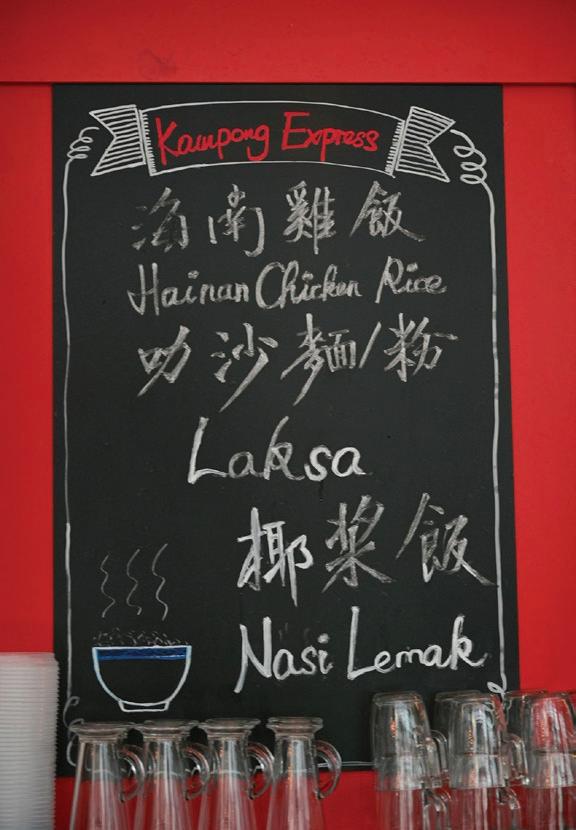 Kampong Express
海南雞飯
Hainan Chicken Rice
叻沙麵/粉
Laksa
椰漿飯
Nasi Lemak